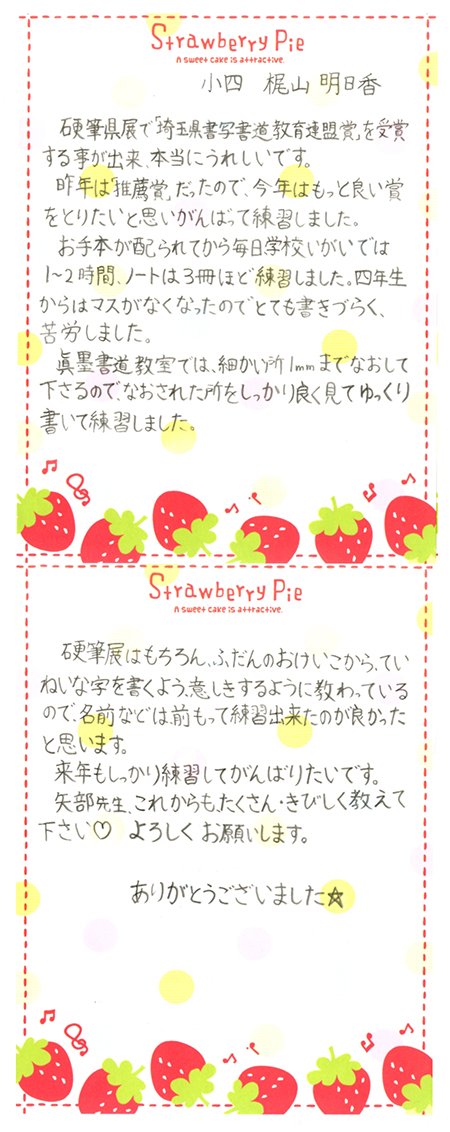 Strawberry Pie
A sweet cake is attractive.
小四 梶山 明日香
硬筆県展で「埼玉県書写書道教育連盟賞」を受賞
する事が出来、本当にうれしいです。
昨年は「推薦賞」だったので、今年はもっと良い賞
をとりたいと思いがんばって練習しました。
お手本が配られてから毎日学校いがいでは
1〜2時間、ノートは3冊ほど練習しました。四年生
からはマスがなくなったのでとても書きづらく、
苦労しました。
眞墨書道教室では、細かい所1mmまでなおして
下さるので、なおされた所をしっかり良く見てゆっくり
書いて練習しました。
Strawberry Pie
A sweet cake is attractive.
硬筆展はもちろん、ふだんのおけいこから、てい
ねいな字を書くよう、意しきするように教わっている
ので、名前などは、前もって練習出来たのが良かった
と思います。
来年もしっかり練習してがんばりたいです。
矢部先生、これからも、たくさん・きびしく教えて
下さい♡ よろしくお願いします。
ありがとうございました☆